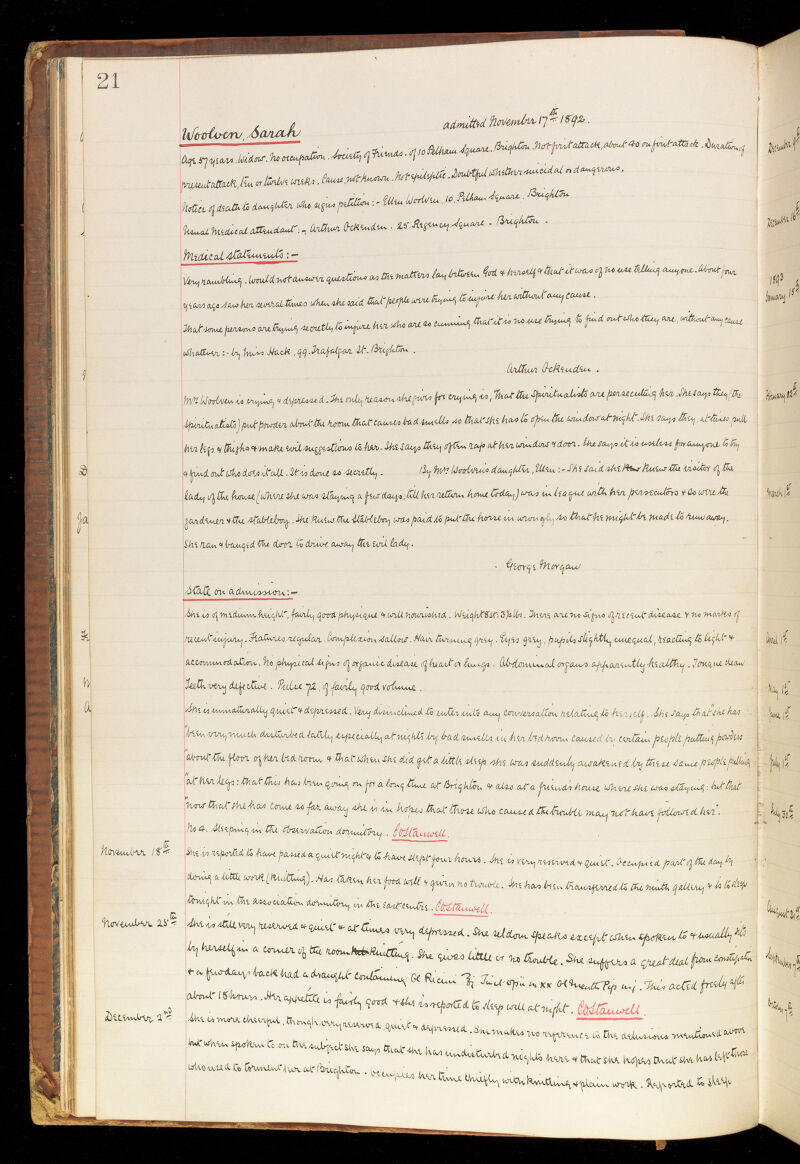 21
Woolven, Sarah
admitted November 17th 1892.
Age 57 years. Widow. No occupation. Society of Friends. of 10 Pelham Square, Brighton. Not first attack, about 40 on first attack. Duration of
present attack, ten or twelve weeks. Cause, not known. Not epileptic. Doubtful whether suicidal or dangerous.
Notice of death to daughter who signs petition :- Ellen Woolven, 10, Pelham Square. Brighton
Usual Medical attendant :- Arthur Ockenden. 25. Regency Square. Brighton.
Medical Statements :-
Very rambling. Would not answer questions as the matters lay between God & herself & that it was of no use telling anyone. About four
years ago saw her several times when she said that people were trying to injure her without any cause.
That some persons are trying secretly to injure her who are so cunning that it is no use trying to find out who they are, without any cause
whatever :- by Miss Hack, 99. Trafalgar St. Brighton.
Arthur Ockenden.
Mrs Woolven is crying & depressed. The only reason she gives for crying is, That the Spiritualists are persecuting her. She says they (the
Spiritualists) put powder about the room that causes bad smells so that she has to open the window at night. She says they, at times pull
her legs & thighs & make evil suggestions to her. She says they often rap at her windows & door. She says it is useless for anyone to try
& find out who does it all. It is done so secretly. By Mrs Woolven's daughter, Ellen :- She said she knew the visitor of the
lady of the house (where she was staying a few days, till her return home today) was in league with her persecutors & so were the
gardener & the stableboy. She knew the stableboy was paid to put the horse in wrongly, so that he might be made to run away.
She ran & banged the door to drive away the evil lady.
George Morgan
State on admission :-
She is of medium height, fairly good physique & well nourished. Weight 8st. 3½lbs. There are no signs of recent disease & no marks of
recent injury. Features regular. Complexion sallow. Hair turning grey. Eyes grey, pupils slightly unequal, reacting to light &
accommodation. No physical signs of organic disease of heart or lungs. Abdominal organs apparently healthy. Tongue clean
Teeth very defective. Pulse 72, of fairly good volume.
She is unnaturally quiet & depressed. Very disinclined to enter into any conversation relating to herself. She says that "she has
"been very much disturbed lately especially at nights by bad smells in her bedroom caused by certain people putting powders
"about the floor of her bedroom & that when she did get a little sleep she was suddenly awakened by these same people pulling
"at her legs: that this has been going on for a long time at Brighton & also at a friend's house where she was staying: but that
"now that she has come so far away she is in hopes that those who caused the trouble may not have followed her".
No 4. Sleeping in the observation dormitory. CoStanwell.
November 18th
She is reported to have passed a quiet night & to have slept four hours. She is very reserved & quiet. Occupied part of the day by
doing a little work (knitting). Has taken her food well & given no trouble. She has been transferred to the ninth gallery & is to sleep
tonight in the association dormitory in the east centre. CoStanwell.
November 25th
She is still very reserved & quiet & at times very depressed. She seldom speaks except when spoken to & usually sits
by herself in a corner of the room knitting. She gives little or no trouble. She suffers a great deal from constipation
& a few days back had a draught containing Ol Ricini ℥j Tinct opii m xx Ol Menth Pip mj. This acted freely after
about 18 hours. Her appetite is fairly good & she is reported to sleep well at night. CoStanwell.
December 2nd
She is more cheerful, though very reserved quiet & depressed. She makes no reference to the delusions mentioned above
but when spoken to on the subject she says that she has undisturbed nights here & that she hopes that she has left those
who used to torment her at Brighton. Occupies her time chiefly with knitting & plain work. Reported to sleep
December 9th
December 16th
1893
January 13th
March 1st
April 1st
May 1st
June 1st
July 1st
July 31st